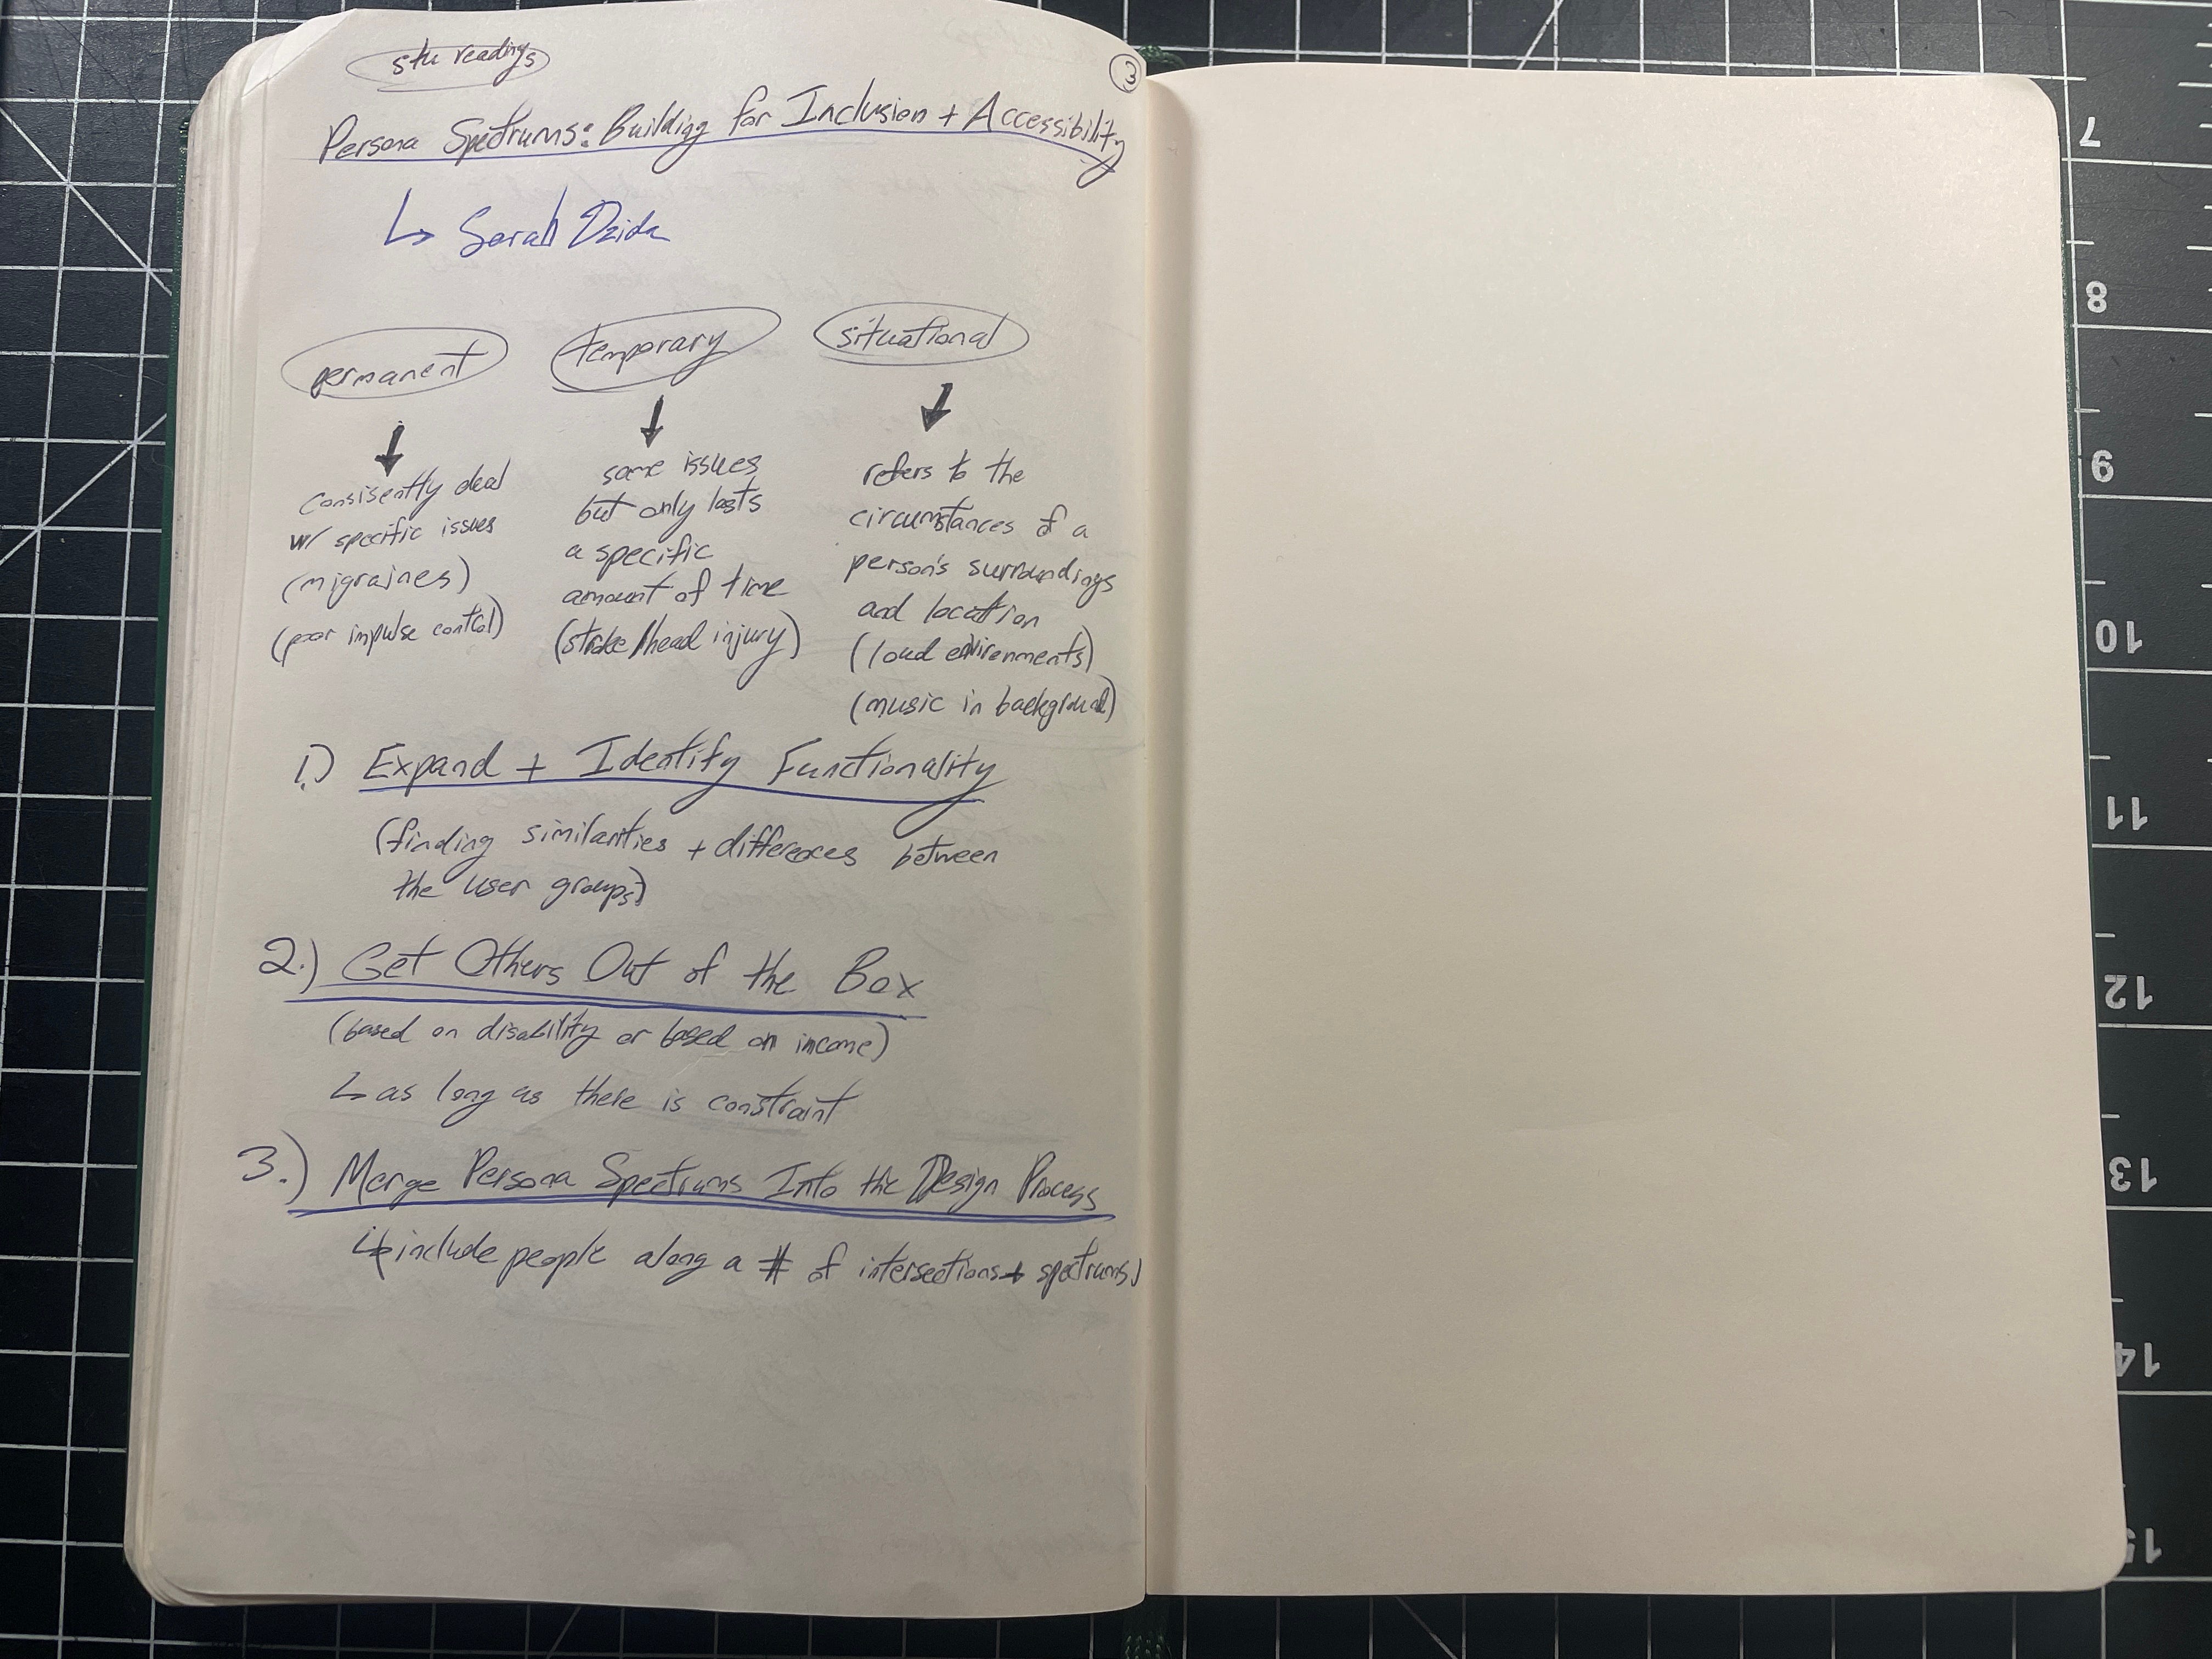 stu readings
3
Persona Spectrums: Building for Inclusion + Accessibility
↳ Sarah Dzida
permanent
consisently deal
w/ specific issues
(migraines)
(poor impulse control)
temporary
same issues
but only lasts
a specific
amount of time
(stroke/head injury)
situational
refers to the
circumstances of a
person's surroundings
and location
(loud environments)
(music in background)
1.) Expand + Identify Functionality
(finding similarities + differences between
the user groups)
2.) Get Others Out of the Box
(based on disability or based on income)
↳ as long as there is constraint
3.) Merge Persona Spectrums Into the Design Process
↳ include people along a # of intersections + spectrums)
7
8
9
10
11
12
13
14
15